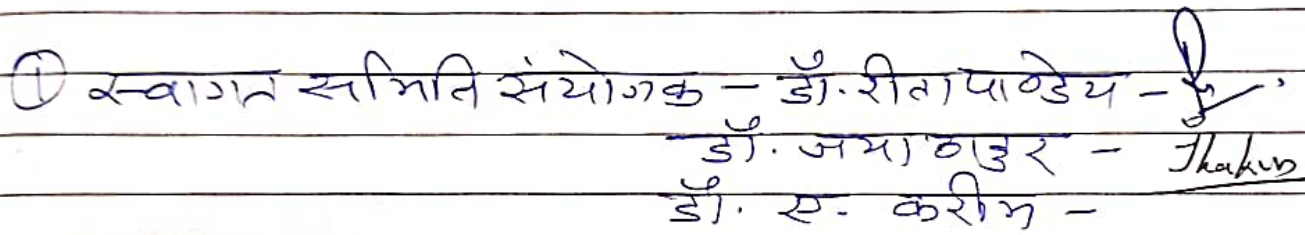 ① स्वागत समिति संयोजक - डॉ. रीता पाण्डेय -
डॉ. जया ठाकुर - Thakur
डॉ. ए. करीम -